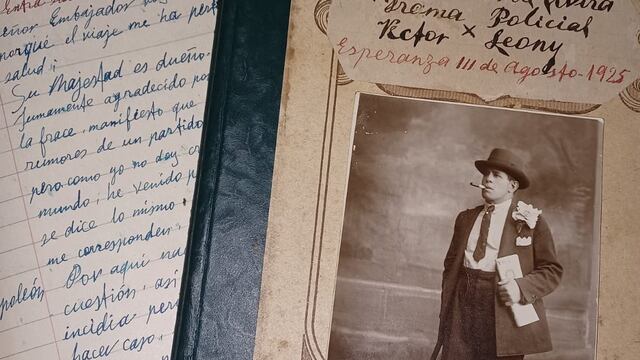 Entra
señor Embajador
porqué el viaje me ha
salud;
Su Majestad es dueño
Sumamente agradecido
la frace, manifiesto que
rumores de un partido
pero como yo no doy
mundo, he venido
se dice lo mismo
me corresponden
Por aquí
cuestión, así
incidia
hacer caso,
Drama Policial
Victor x Leony
Esperanza III de Agosto-1925